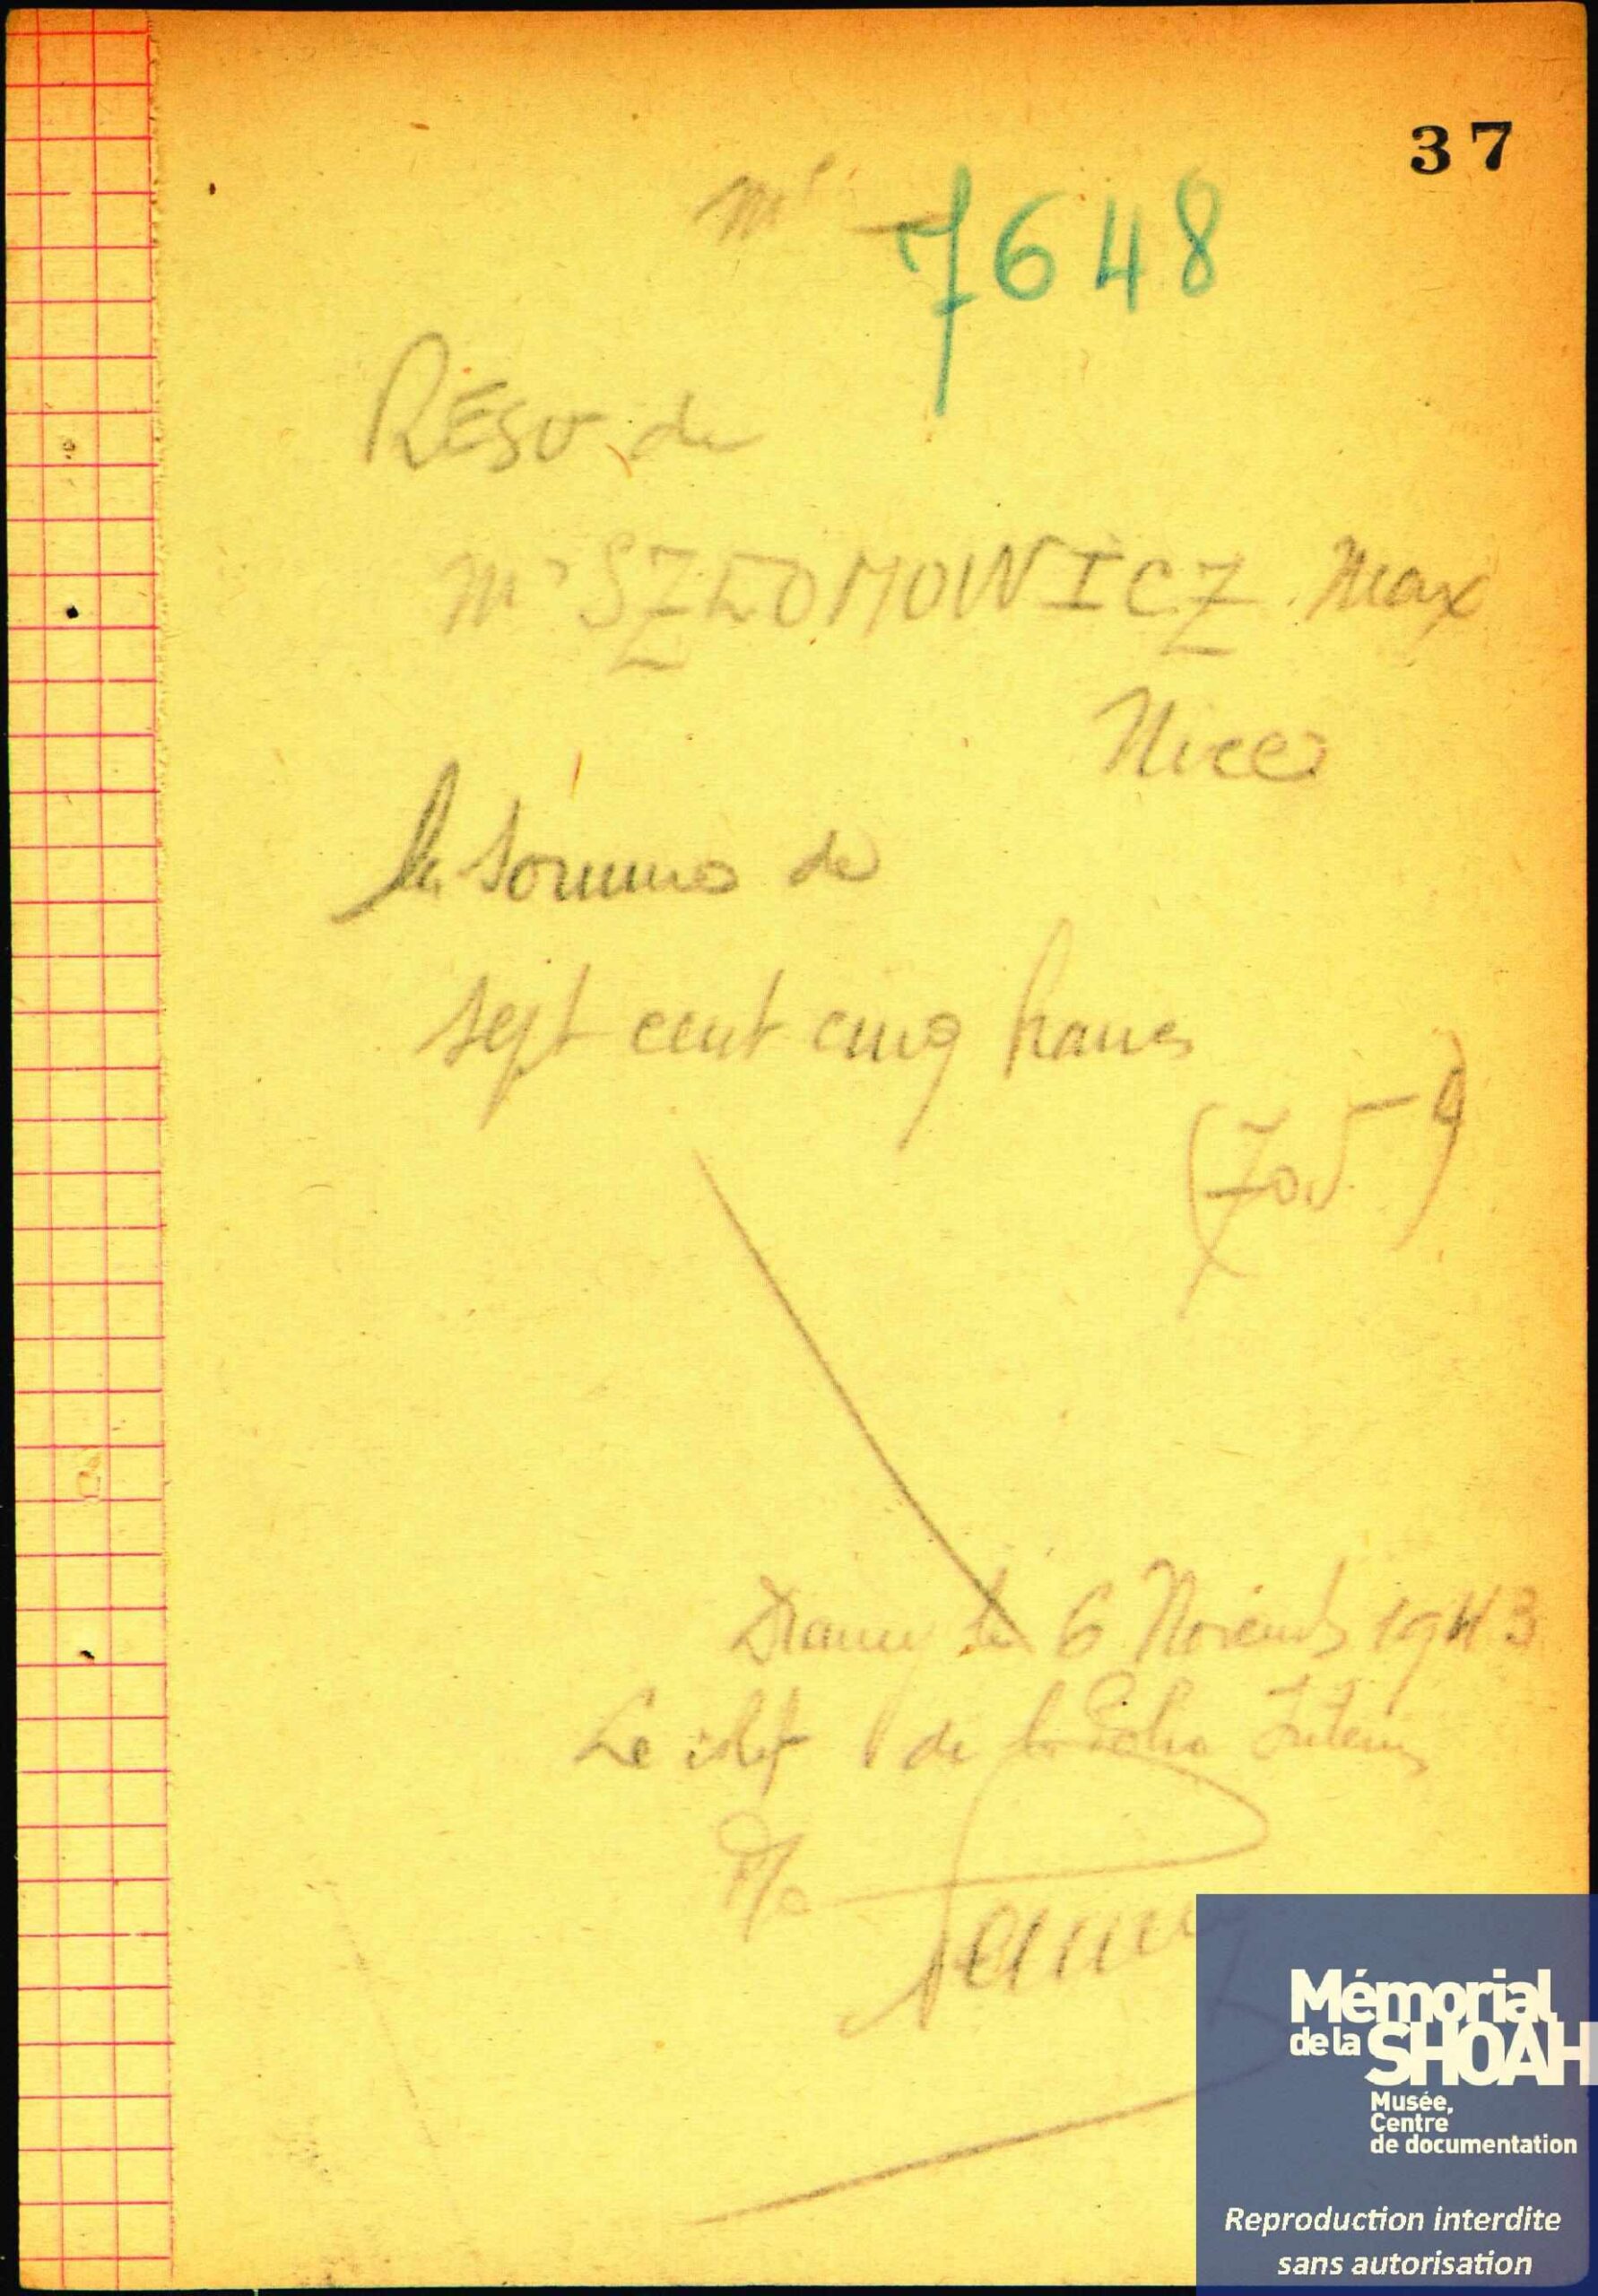 37
Mr 7648
RESU de
Mr SZLOMOWICZ Max
Nice
la somme de
sept cent cinq francs
(705-)
Drancy le 6 Novemb 1943
Le chef de la Police Intern
P/o
Mémorial
de la SHOAH
Musée,
Centre
de documentation
Reproduction interdite
sans autorisation